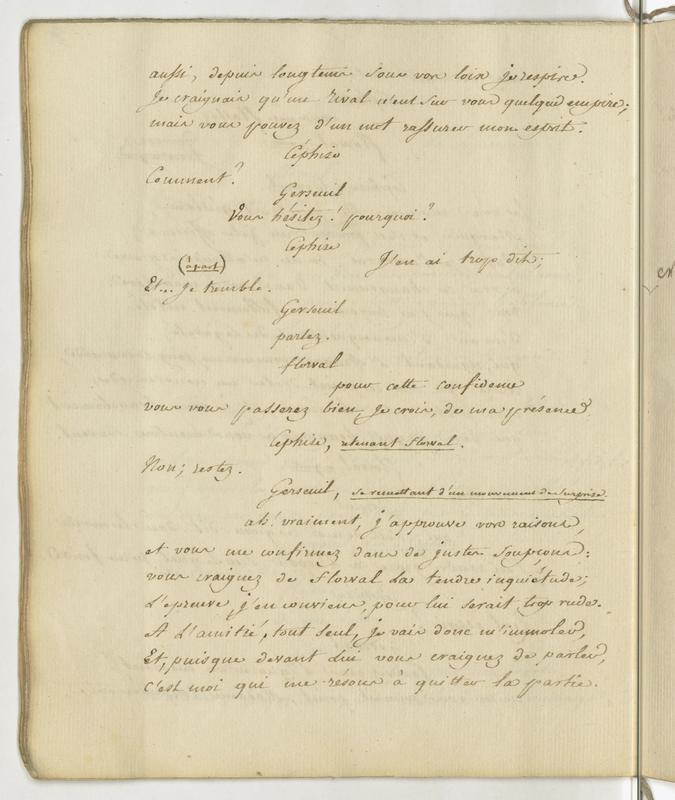 aussi, depuis longtems sous vos loix je respire.
Je craignais qu'un rival n'eut sur vous quelque empire;
mais vous pouvez d'un mot rassurer mon esprit.
Céphise
Comment?
Gerseuil
Vous hésitez! pourquoi?
Cephise
J'en ai trop dit;
(à part)
Et... je tremble.
Gerseuil
parlez.
florval
pour cette confidence
vous vous passerez bien, je crois, de ma présence.
Cephise, retenant florval.
Non; restez.
Gerseuil, se remettant d'un mouvement de surprise.
ah! vraiment, j'approuve vos raisons,
et vous me confirmez dans de justes soupçons:
vous craignez de florval la tendre inquiétude;
L'epreuve, j'en conviens, pour lui serait trop rude.
A L'amitié, tout seul, je vais donc m'immoler,
Et, puisque devant lui vous craignez de parler,
C'est moi qui me résous à quitter la partie.